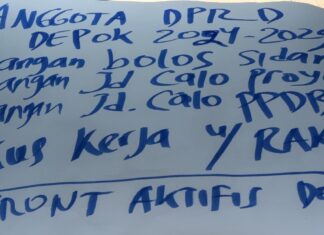 ANGGOTA DPRD
DEPOK 2024-202
angan bolos Sidan
angan Jd Calo Proy
angan Jd. Calo PPDB
kus Kerja u/ RAK
RONT AKTIFIS De